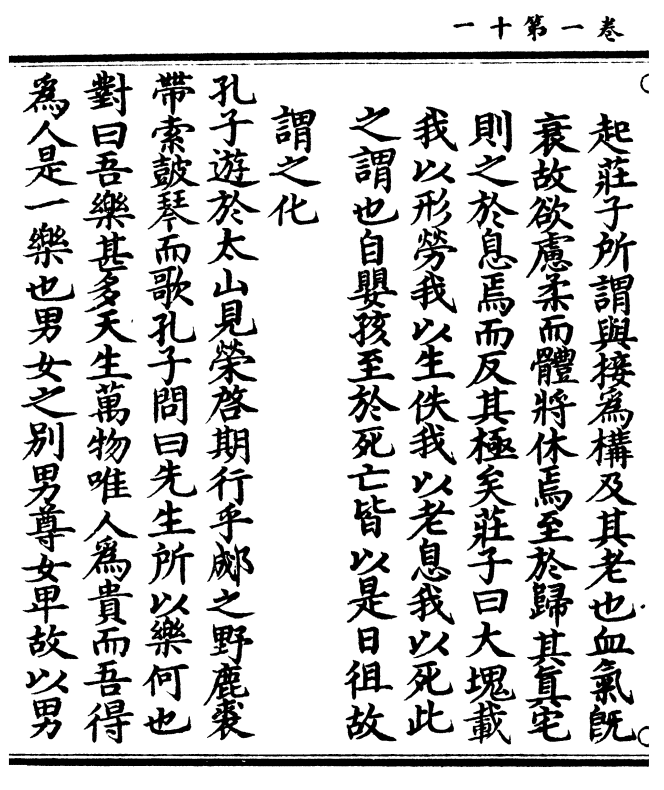 卷一第十一
起莊子所謂與接爲構及其老也血氣旣
衰故欲慮柔而體將休焉至於歸其眞宅
則之於息焉而反其極矣莊子曰大塊載
我以形勞我以生佚我以老息我以死此
之謂也自嬰孩至於死亡皆以是日徂故
謂之化
孔子遊於太山見榮啓期行乎郕之野鹿裘
帶索皷琴而歌孔子問曰先生所以樂何也
對曰吾樂甚多天生萬物唯人爲貴而吾得
爲人是一樂也男女之別男尊女卑故以男